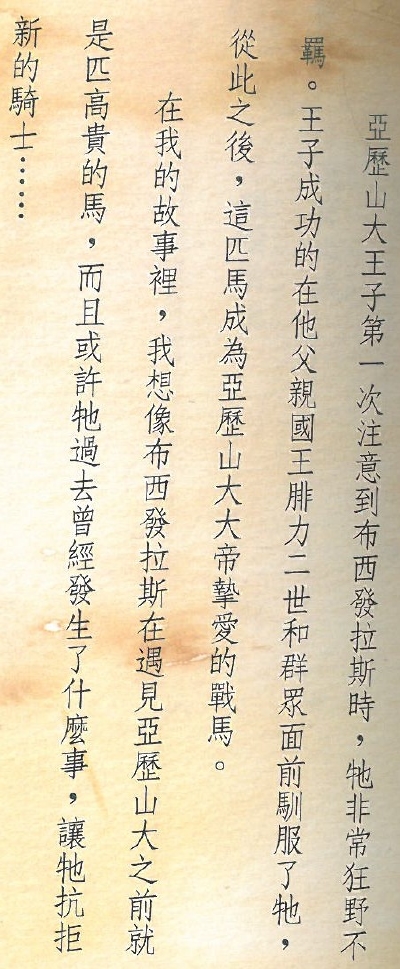 亞歷山大王子第一次注意到布西發拉斯時，牠非常狂野不
羈。王子成功的在他父親國王腓力二世和群眾面前馴服了牠，
從此之後，這匹馬成為亞歷山大大帝摯愛的戰馬。
在我的故事裡，我想像布西發拉斯在遇見亞歷山大之前就
是匹高貴的馬，而且或許牠過去曾經發生了什麼事，讓牠抗拒
新的騎士……